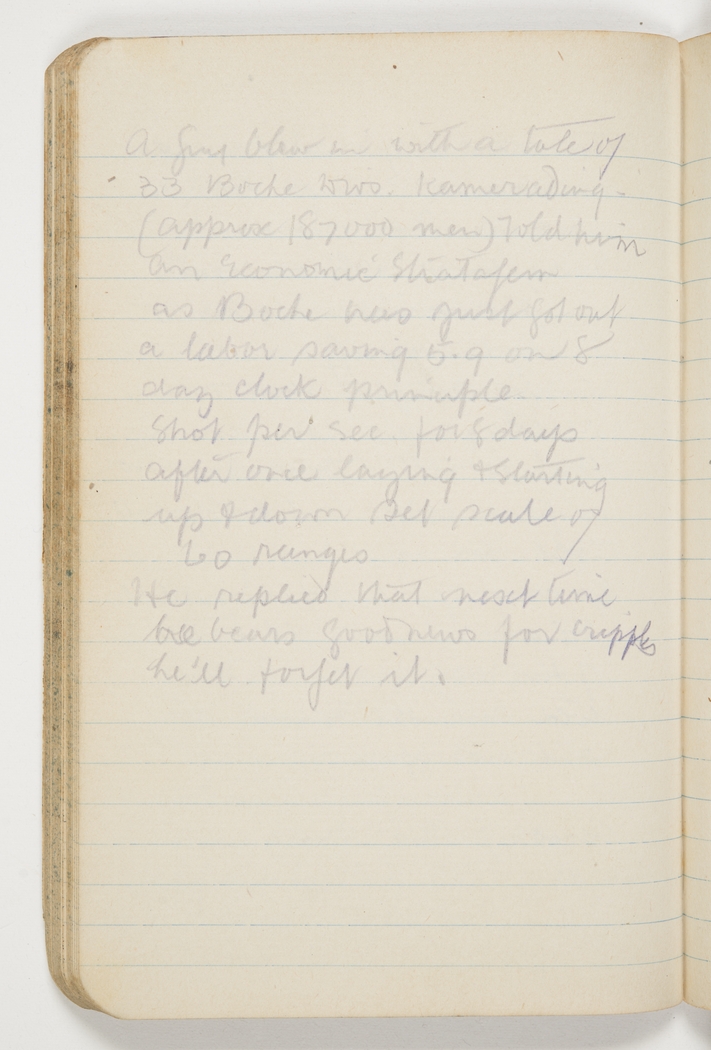 A guy blew in with a tale of
33 Boche Divs. Kamerading.
(approx 187000 men) Told him
an Economic Stratagem
as Boche has just got out
a labor saving 5.9 on 8
day clock principle.
Shot per sec. for 8 days
after once laying & starting
up & down set scale of
60 ranges
He replied that next time
he bears good news for cripples
he'll forget it.